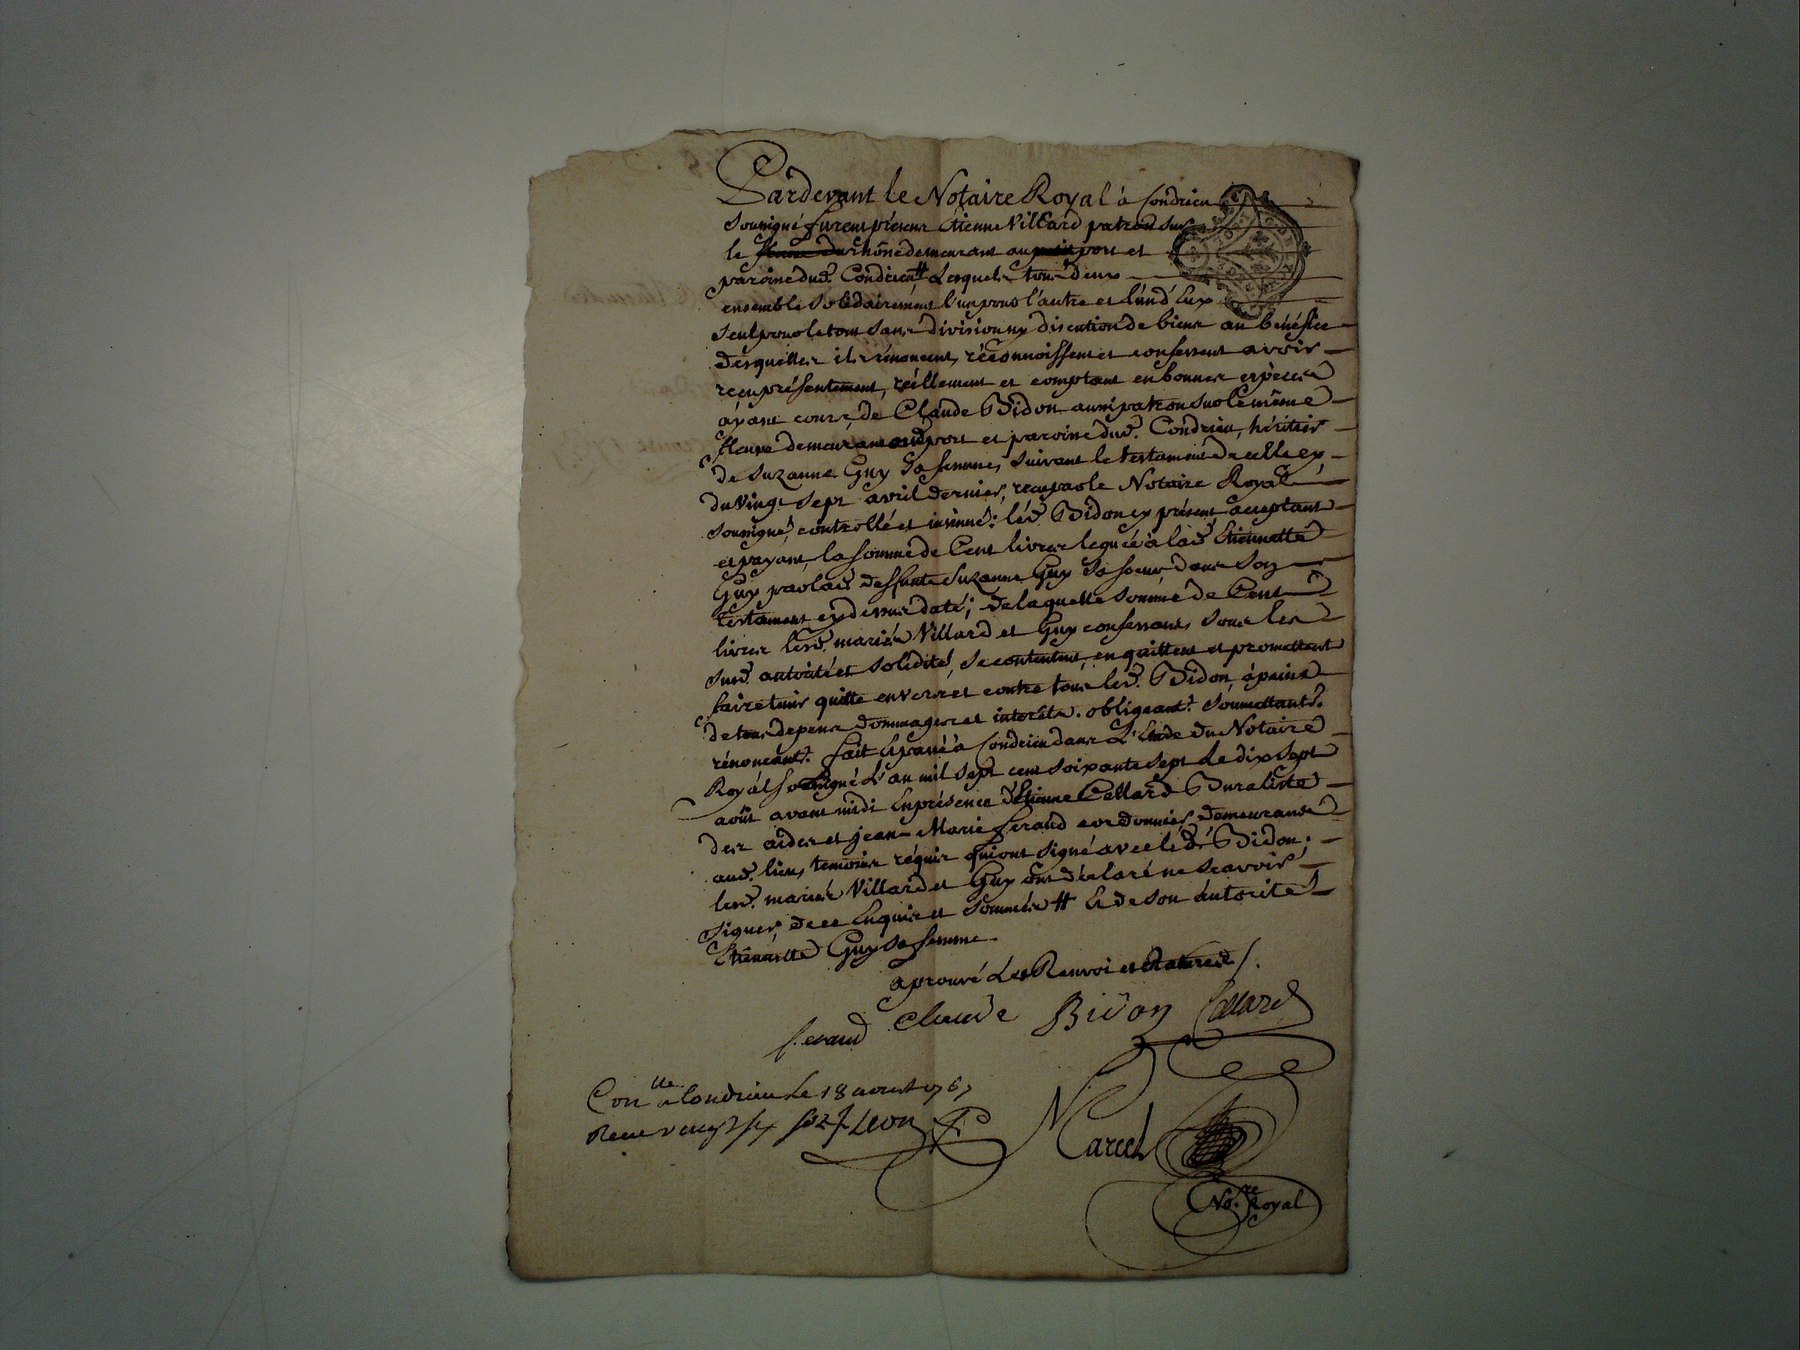 Pardevant le Notaire Royal à Condrieu
Soussigné furent présens Etienne Villard patron sur
le fleuve du rhône demeurant au port et
paroisse dud. Condrieu # Lesquels tous deux
ensemble solidairement l'un pour l'autre et l'un d'Eux
seul pour le tout sans division ny discution de biens au bénéfice
desquelles ils rénoncent, réconnoissent et confessent avoir
reçu présentement, réellement et comptant en bonnes espèces
ayant cours, de Claude Bidon aussi patron sur le même
fleuve demeurant aud. port et paroisse dud. Condrieu, héritier
de Suzanne Guy sa femme, suivant le testament de celle cy
du vingt sept avril dernier, reçu par le Notaire Royal
soussigné, controllé et insinué; led. Bidon cy présent acceptant
et payant, la somme de Cent livres leguée à lad. Etiennette
Guy par lad. deffunte Suzanne Guy sa soeur dans son
testament cy dessus daté; de laquelle somme de Cent
livres lesd. mariés Villard et Guy confessants, sous les
susd. autorité et solidité, se contentent, en quittent et promettent
faire tenir quitte envers et contre tous led. Bidon, à peine
de tous depens dommages et intérêts. obligeant. Soumettants.
rénonçants. fait et passé à Condrieu dans L'Etude du Notaire
Royal soussigné L'an mil sept cent soixante sept Le dix sept
août avant midi En présence d'Etienne Cellard Buraliste
des aides et jean-Marie feraud cordonnier demeurants
aud. lieu, temoins réquis qui ont signé avec led. Bidon;
lesd. mariés Villard et Guy ont déclaré ne scavoir
signer, de ce Enquis et sommés # Et de son autorité
Etiennette Guy sa femme
aprouvé Les Renvoi et Ratures /.
feraud Claude Bidon Cellard
Con.lle a Condrieu Le 18 aoust 1767
Recu Leon
Marcel
No.re Royal